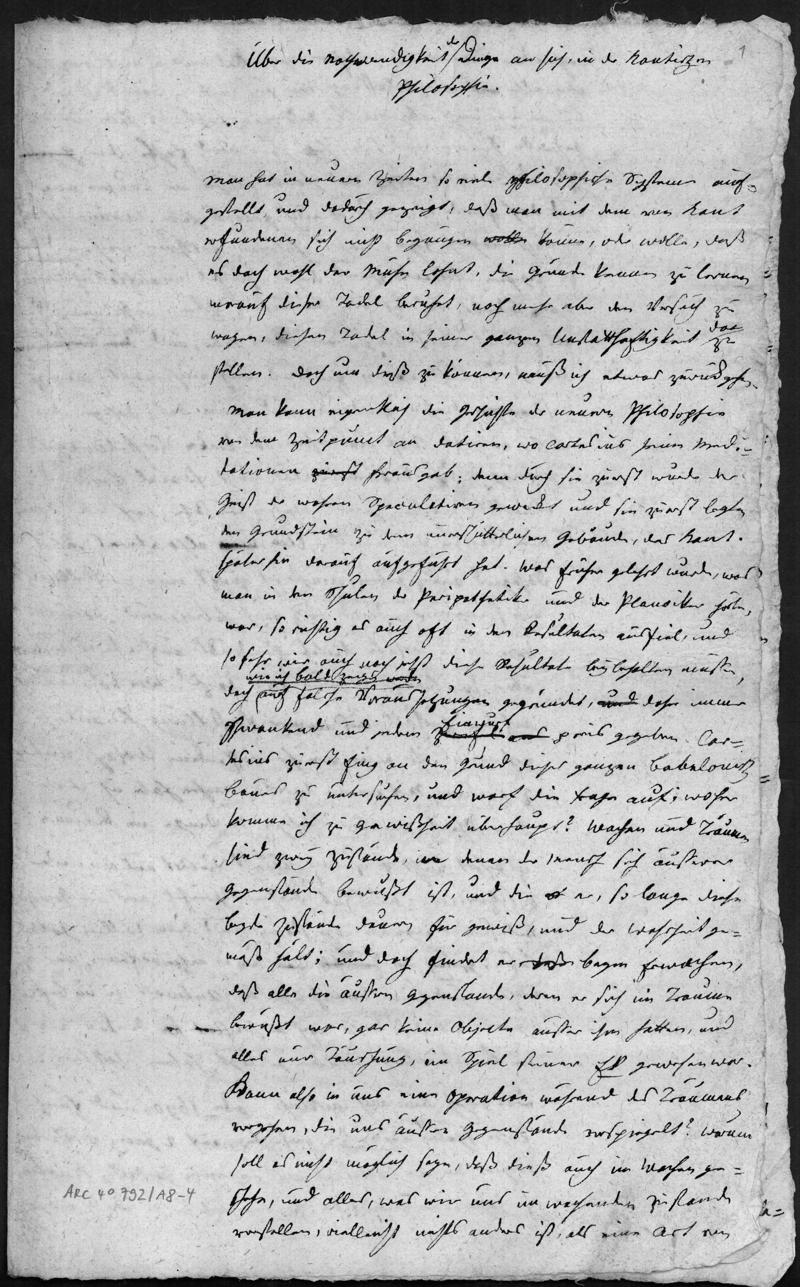 1
Über die Nothwendigkeit der Dinge an sich, in der Kantischen
Philosophie.
Man hat in neuern Zeiten so viele philosophische Systeme auf-
gestellt und dadurch gezeigt, daß man mit dem von Kant
erfundenen sich nicht begnügen wolle könne, oder wolle, daß
es doch wohl der Mühe lohnt, die Gründe kennen zu lernen
worauf dieser Tadel beruhet, noch mehr aber den Versuch zu
wagen, diesen Tadel in seiner ganzen Unstatthaftigkeit dar
zu
stellen. Doch um dieß zu können, muß ich etwas zurück gehen.
Man kann eigentlich die Geschichte der neuern Philosophie
von dem Zeitpunct an datiren, wo Cartesius seine Medi-
tationen zuerst herausgab; denn durch sie zuerst wurde der
Geist der wahren Speculation geweckt und sie zuerst legten
den Grundstein zu dem unerschütterlichen Gebäude, das Kant
späterhin darauf aufgeführt hat. Was früher gelehrt wurde, was
man in den Schulen der Peripathetiker und der Platoniker hörte,
war, so richtig es auch oft in den Resultaten ausfiel, und
so sehr wir auch noch jetzt diese Resultate beybehalten müssen,
wie ich bald zeigen werde
doch auf falsche Voraussetzungen gegründet, und daher immer
schwankend und jedem Einwurf preis gegeben. Car-
tesius zuerst fing an den Grund dieses ganzen babelonischen
Baues zu untersuchen, und warf die Frage auf: woher
komme ich zu Gewißheit überhaupt? Wachen und Träumen
sind zwey Zustände, in denen der Mensch sich äusserer
Gegenstände bewußt ist, und die er, so lange diese
beyde Zustände dauern für gewiß, und der Wahrheit ge-
mäß hält; und doch findet er beym Erwachen,
daß alle die äussern Gegenstände, deren er sich im Traume
bewußt war, gar keine Objecte ausser ihm hatten, und
alles nur Täuschung, ein Spiel seiner gewesen war.
Kann also in uns eine Operation während des Träumens
vorgehen, die uns äussere Gegenstände vorspiegelt? warum
soll es nicht möglich seyn, daß dieß auch im Wachen ge-
schehe, und alles, was wir uns im wachenden Zustande
vorstellen, vielleicht nichts anders ist, als eine Art von
ARC 4° 792/A8-4